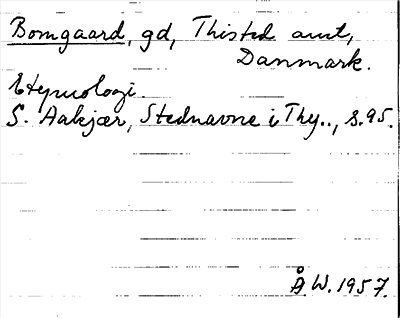 Bomgaard, gd, Thisted amt,
Danmark.
Etymologi.
S. Aakjær, Stednavne i Thy.., s.95.
Å W. 1957.